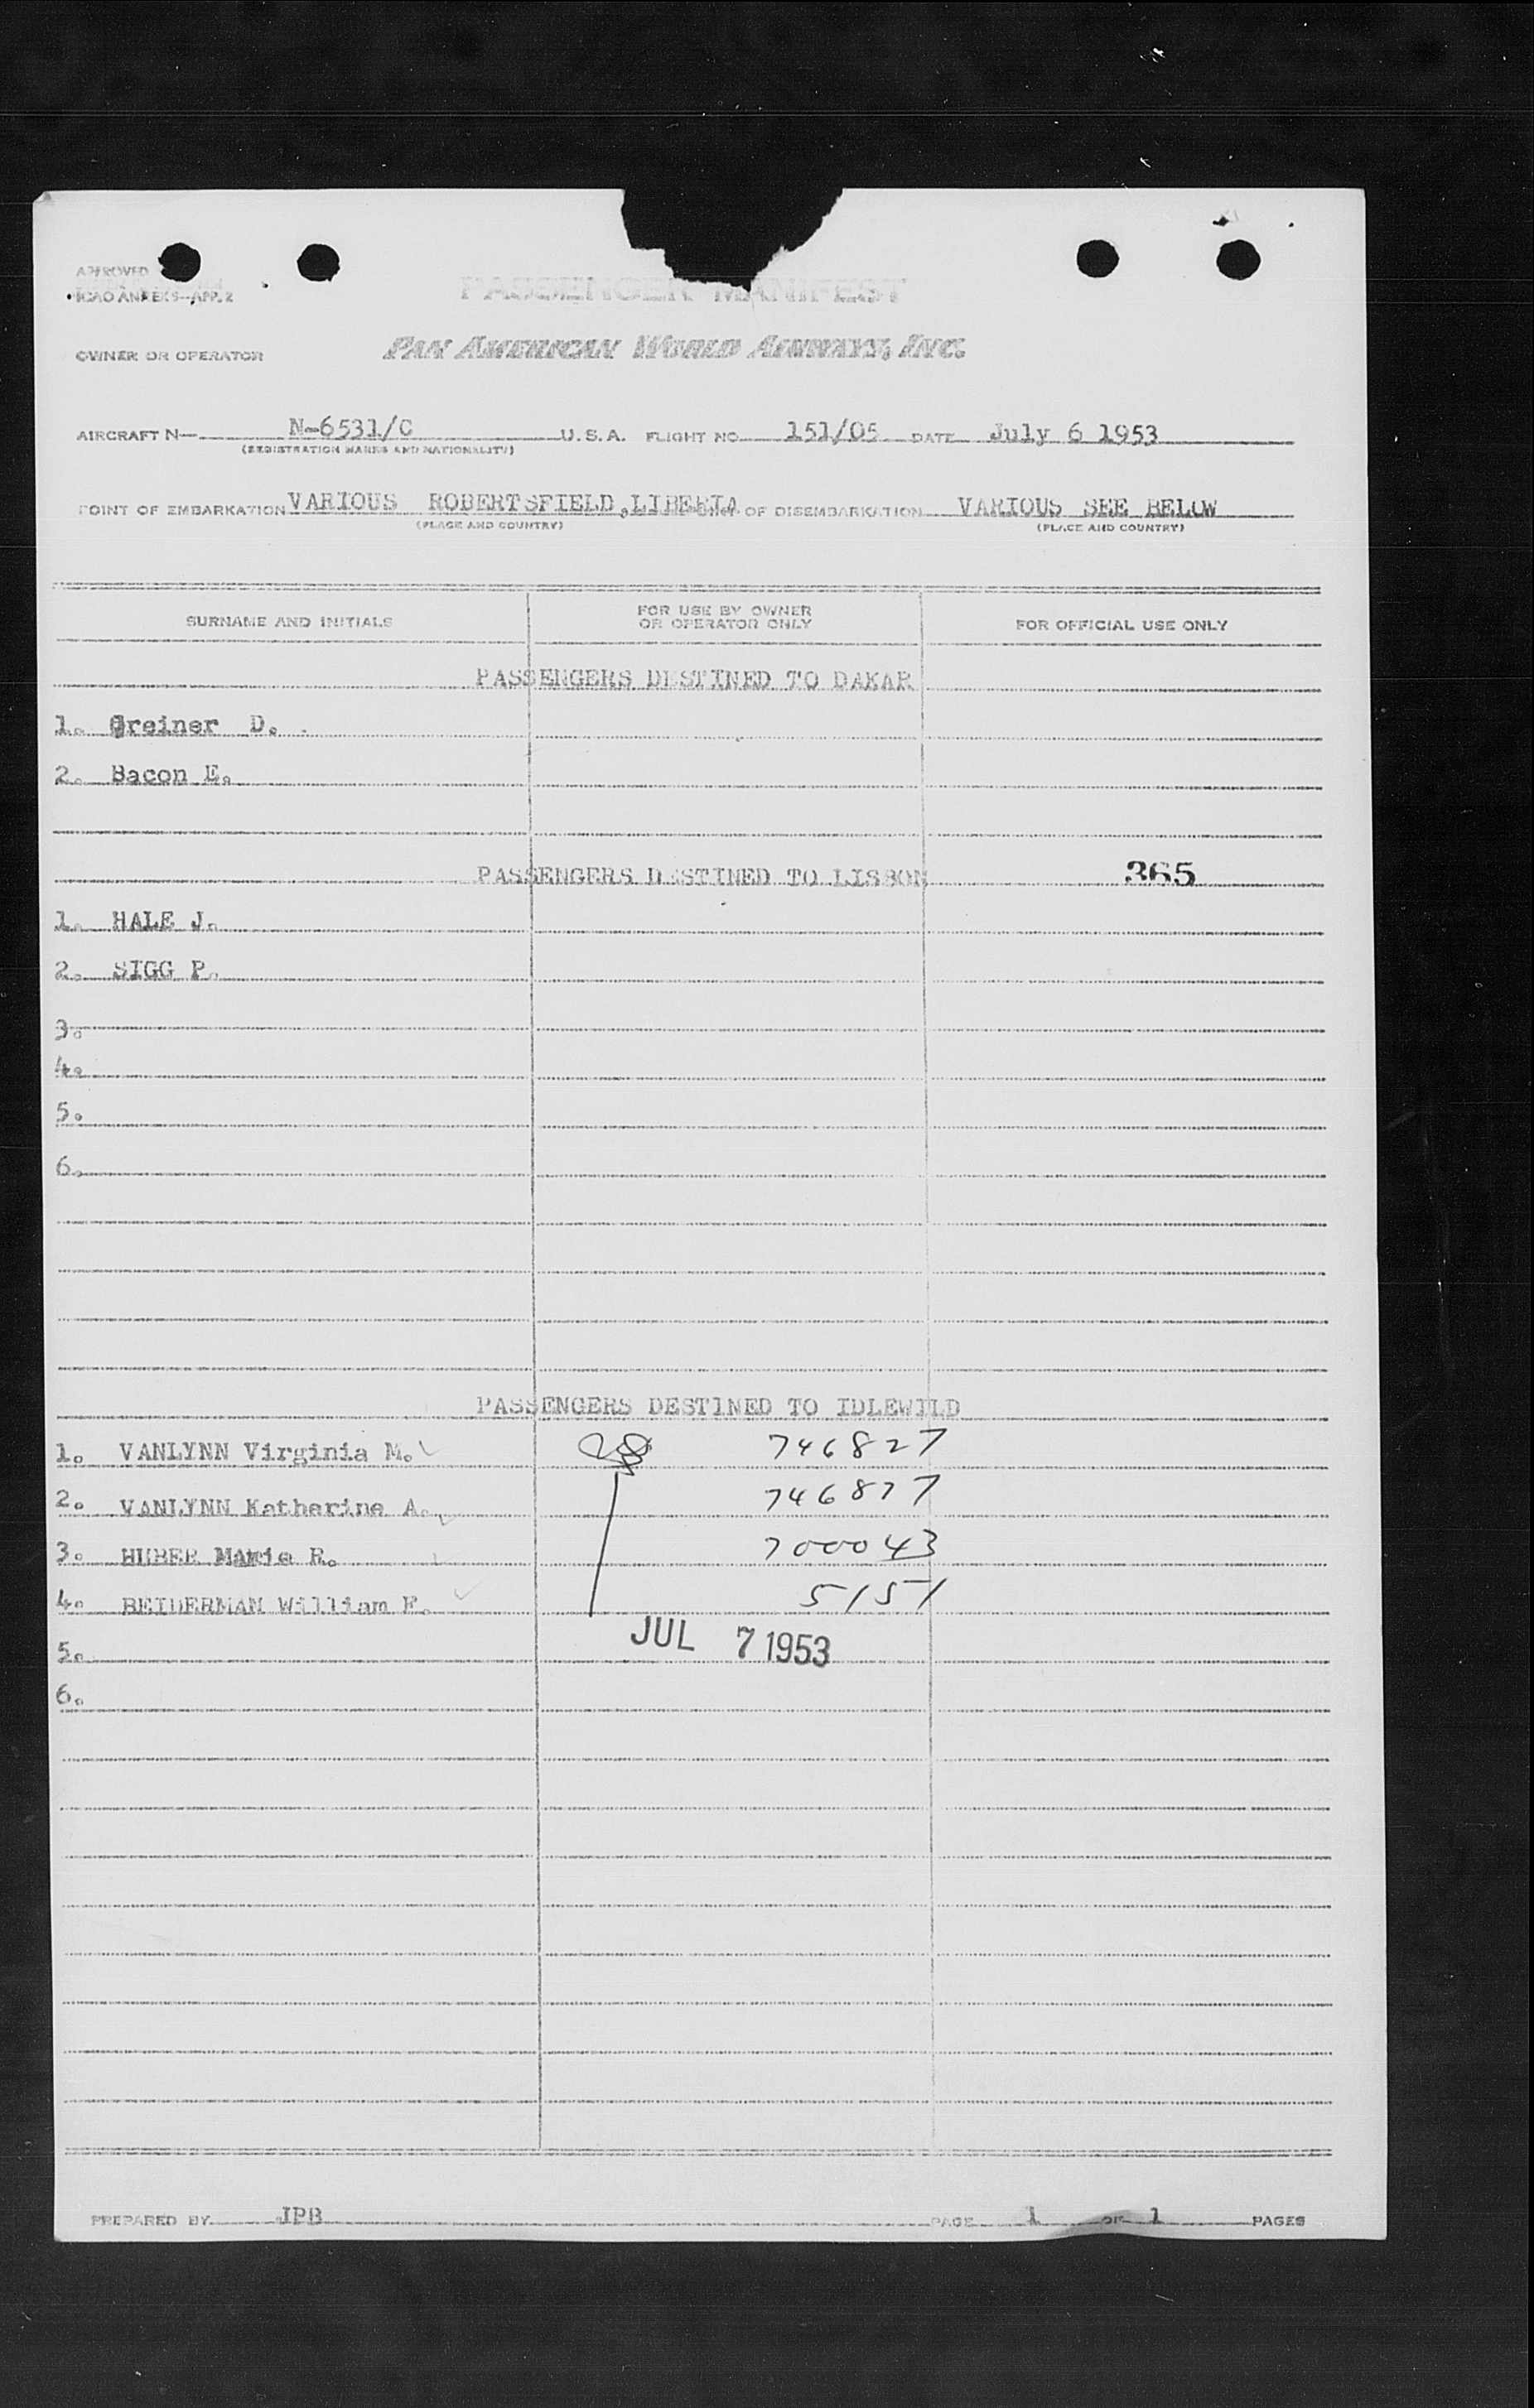 APPROVED
ICAO ANNEX 9—APP. 2
PASSENGER MANIFEST
OWNER OR OPERATOR PAN AMERICAN WORLD AIRWAYS, INC.
AIRCRAFT N— N-6531/C U.S.A. FLIGHT NO. 151/05 DATE July 6 1953
(REGISTRATION MARKS AND NATIONALITY)
POINT OF EMBARKATION VARIOUS ROBERTSFIELD,LIBERIA POINT OF DISEMBARKATION VARIOUS SEE BELOW
(PLACE AND COUNTRY) (PLACE AND COUNTRY)
SURNAME AND INITIALS FOR USE BY OWNER OR OPERATOR ONLY FOR OFFICIAL USE ONLY
PASSENGERS DESTINED TO DAKAR
1. Greiner D.
2. Bacon E.
PASSENGERS DESTINED TO LISBON 365
1. HALE J.
2. SIGG P.
3.
4.
5.
6.
PASSENGERS DESTINED TO IDLEWILD
1. VANLYNN Virginia M. 746827
2. VANLYNN Katherine A. 746827
3. HUBER Marie R. 700043
4. BEIDERMAN William F. 5151
JUL 7 1953
5.
6.
PREPARED BY JPB PAGE 1 OF 1 PAGES